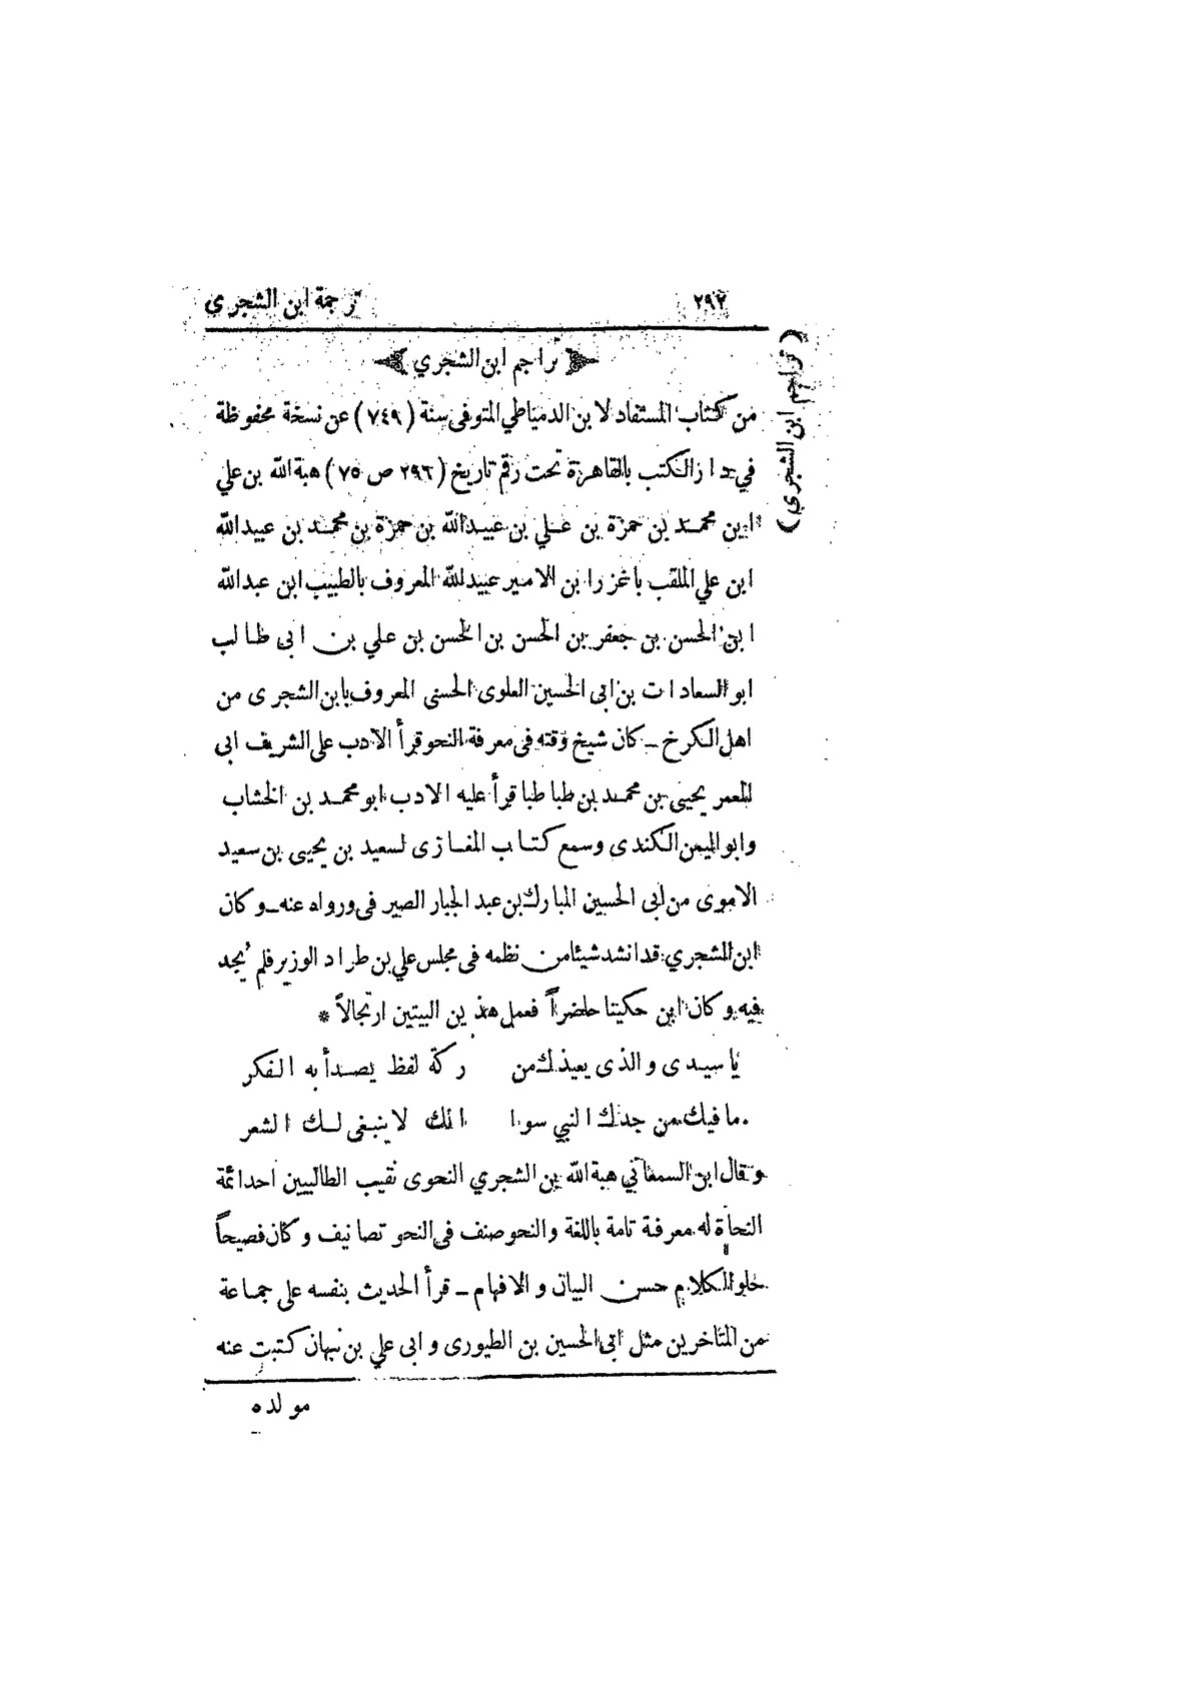 ٢٩٢ ترجمة ابن الشجري
تراجم ابن الشجري
(تراجم ابن الشجري)
من كتاب المستفاد لابن الدمياطي المتوفى سنة (٧٤٩) عن نسخة محفوظة
في دار الكتب بالقاهرة تحت رقم تاريخ (٢٩٦ ص ٧٥) هبة الله بن علي
ابن محمد بن حمزة بن علي بن عبيدالله بن حمزة بن محمد بن عبيدالله
ابن علي الملقب باغز را بن الامير عبيدالله المعروف بالطبيب ابن عبدالله
ابن الحسن بن جعفر بن الحسن بن الحسن بن علي بن ابى طالب
ابو السعادات بن ابى الحسين العلوى الحسنى المعروف بابن الشجرى من
اهل الكرخ ـ كان شيخ وقته فى معرفة النحو قرأ الادب على الشريف ابى
المعمر يحيى بن محمد بن طباطبا قرأ عليه الادب ابو محمد بن الخشاب
وابو اليمن الكندى وسمع كتاب المغازى لسعيد بن يحيى بن سعيد
الاموى من ابى الحسين المبارك بن عبد الجبار الصير فى ورواه عنه ـ وكان
ابن الشجري قد انشد شيئا من نظمه فى مجلس علي بن طراد الوزير فلم يجد
فيه وكان ابن حكينا حاضراً فعمل هذين البيتين ارتجالاً *
يا سيدى والذى يعيذك من ركة لفظ يصدأ به الفكر
مافيك من جدك النبي سوا انك لا ينبغى لك الشعر
وقال ابن السمعاني هبة الله بن الشجري النحوى نقيب الطالبيين احد ائمة
النحاة له معرفة تامة باللغة والنحو صنف فى النحو تصانيف وكان فصيحاً
حلو الكلام حسن البيان والافهام ـ قرأ الحديث بنفسه على جماعة
من المتأخرين مثل ابى الحسين بن الطيورى وابى علي بن نبهان كتبت عنه
مولده